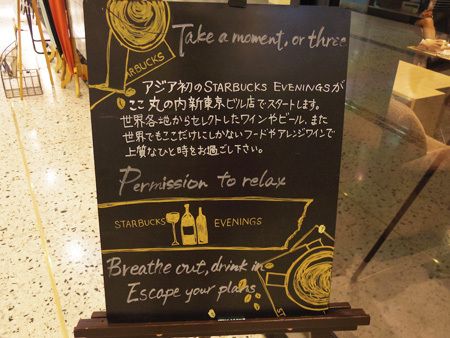 Take a moment, or three
ARBUCKS
アジア初のSTARBUCKS EVENINGSが
ここ丸の内新東京ビル店でスタートします。
世界各地からセレクトしたワインやビール、また
世界でもここだけにしかないフードやアレンジワインで
上質なひと時をお過ご下さい。
Permission to relax
STARBUCKS EVENINGS
Breathe out, drink in
Escape your plans